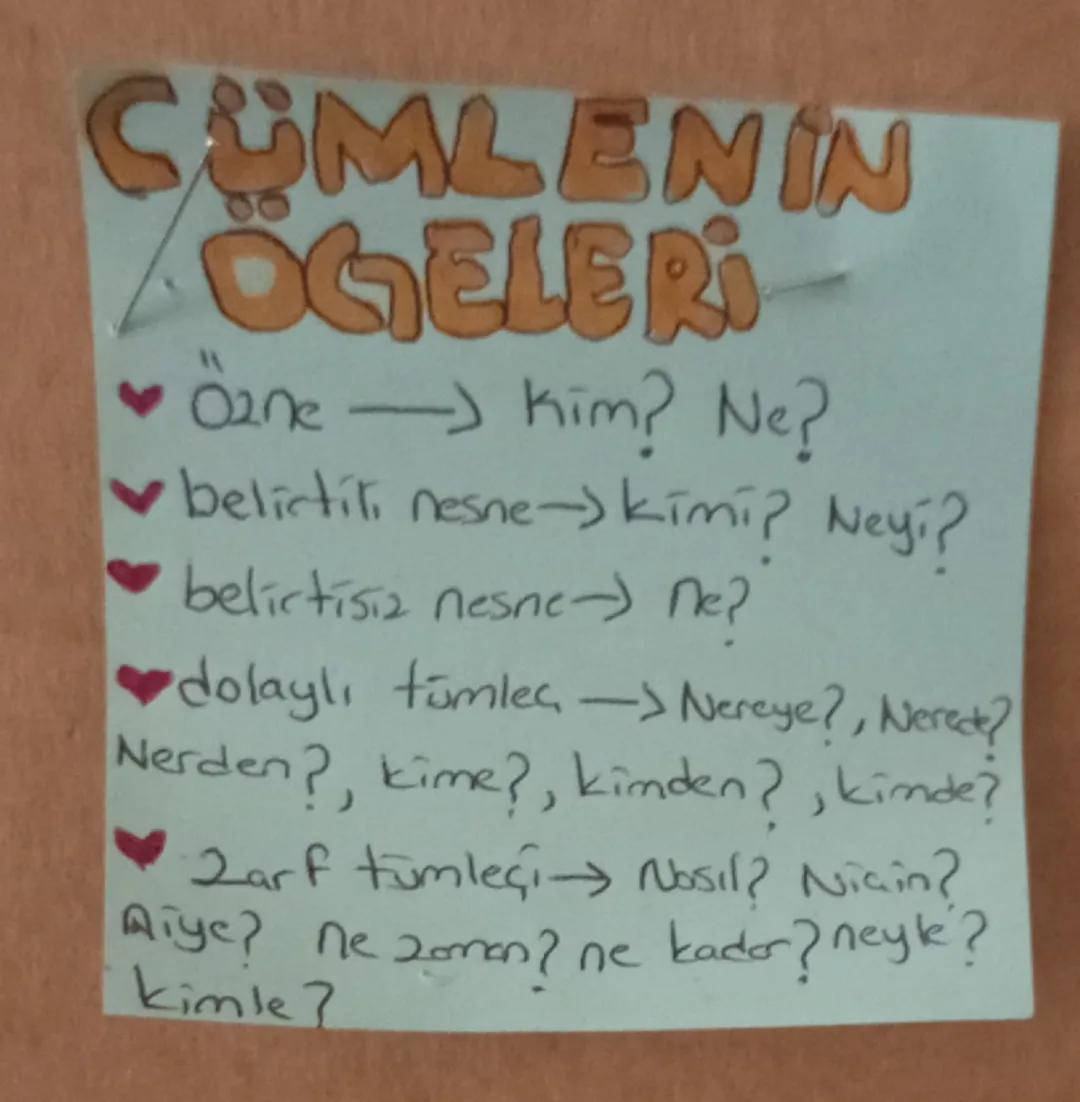 CÜMLENİN
ÖGELERİ
Özne → Kim? Ne?
belirtili nesne → kimi? Neyi?
belirtisiz nesne → Ne?
dolaylı tümleç → Nereye?, Nerede?
Nerden?, kime?, kimden?, kimde?
Zarf tümleçi → Nasıl? Niçin?
Niye? ne zaman? ne kadar? neyle?
kimle?